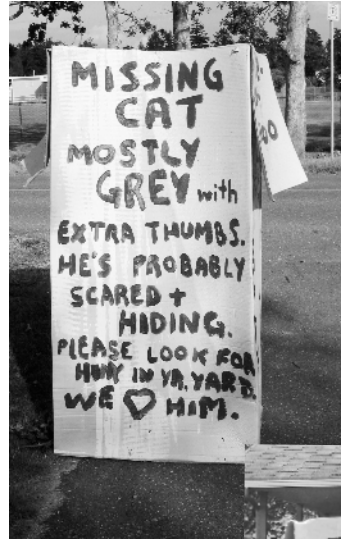 MISSING
CAT
MOSTLY
GREY with
EXTRA THUMBS.
HE'S PROBABLY
SCARED +
HIDING.
PLEASE LOOK FOR
IN YR. YARD.
WE ♡ HIM.